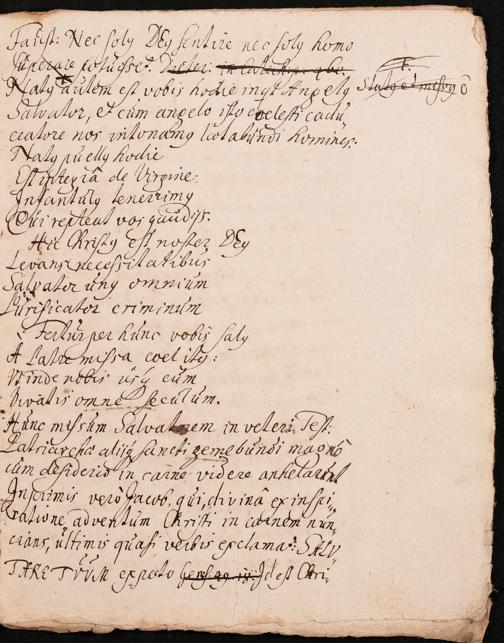 Faust: Nec soly DEy sentire nec soly homo
superare potuisset.
Naty autem est vobis hodie inqt Angely
Salvator, et cum angelo isto coelesti cadu
ceatore nos intonamy laetabundi homines.
Naty puelly hodie
Est intexta de Virgine.
Infantuly tenerrimy
Qui repleat vos gaudijs.
Hic Christy est noster DEy
Levans necessitatibus
Salvator uny omnium
Purificator criminum
Fertur per hunc vobis saly
A Patre missa coelity:
Unde nobis usq cum
Vivatis omne seculum.
Hunc missum Salvatorem in veteri Test:
Patriarchae aliiq sancti gemebundi magnô
cum desiderio in carne videre anhelarunt
Inprimis verò Jacob, qui, divinâ ex inspi-
ratione adventum Christi in carnem nun,
cians, ultimis quasi verbis exclamat: SALU
TARE TUUM expecto Id est Chri,